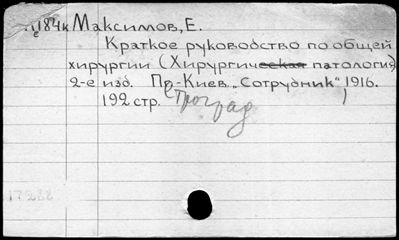 184к Максимов, Е.
Краткое руководство по общей
хирургии (Хирургическая патология)
2-е изд. Пг.-Киев „Сотрудник“ 1916.
192 стр. Петроград
17288